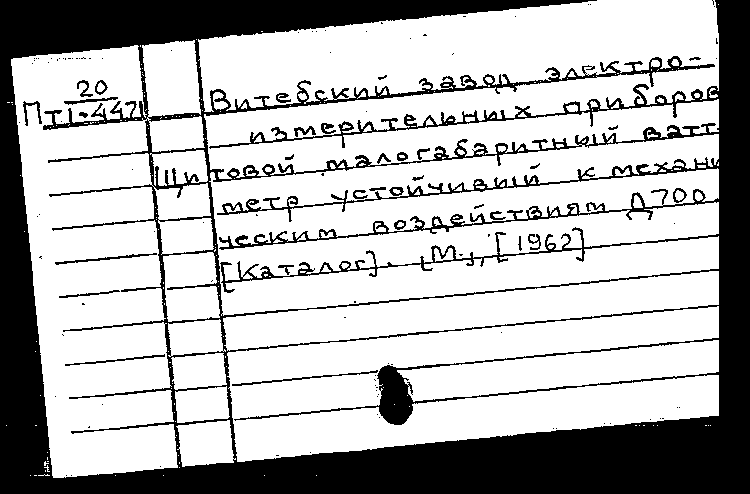 20
ПТI-4471
Витебский завод электро-
измерительных приборов
Щитовой малогабаритный ватт-
метр устойчивый к механи
ческим воздействиям Д700.
[Каталог]. [М.], [1962]